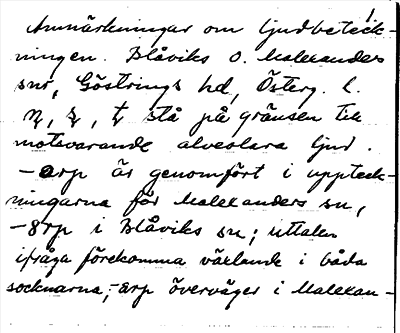 1
Anmärkningar om ljudbeteck-
ningen. Blåviks o. Malexanders
snr, Göstrings hd, Österg. l.
stå på gränsen till
motsvarande alveolara ljud.
-erp är genomfört i uppteck-
ningarna för Malexanders sn,
-erp i Blåviks sn; uttalen
ifråga förekomma växlande i båda
socknarna; -erp överväger i Malexan-